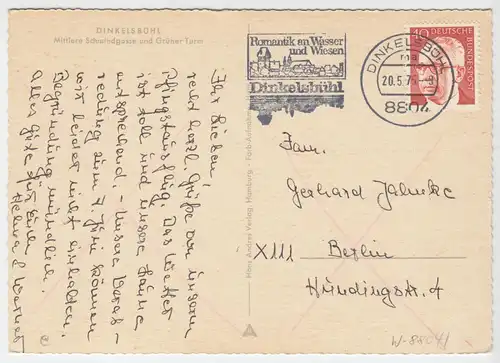 DINKELSBÜHL
Mittlere Schmiedgasse und Grüner Turm
Ihr Lieben!
recht herzl. Grüße von unserem
Pfingstausflug. Das Wetter
ist toll und unsere Laune
entsprechend. - Unsere Verab-
redung zum 7. Juni können
wir leider nicht einhalten.
Begründung mündlich.
Alles Gute für Euch
Helma & Werner
Hans Andres Verlag, Hamburg - Farb-Aufnahme
Romantik an Wasser
und Wiesen
Dinkelsbühl
DINKELSBÜHL
ma
20.5.75
8804
40
DEUTSCHE BUNDESPOST
Fam.
Gerhard Jahnke
XIII Berlin
Hündingstr. 4
W-8804/